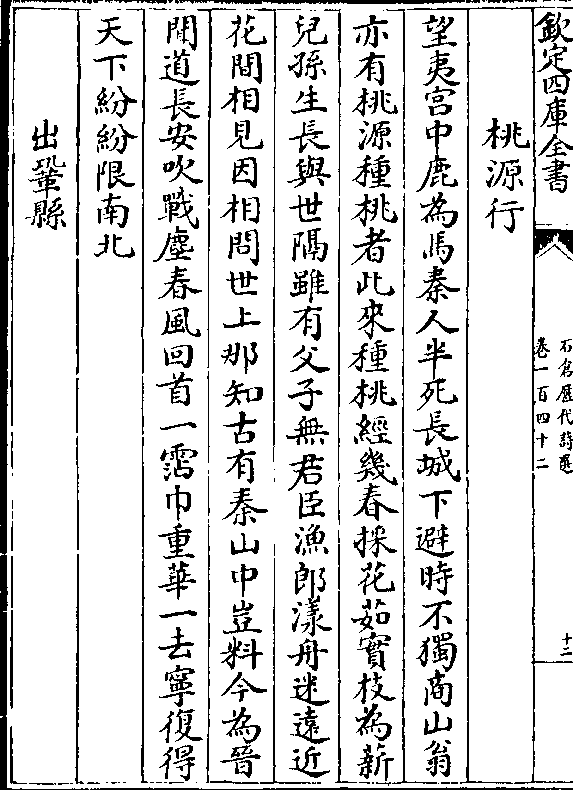 欽定四庫全書
石倉歷代詩選
卷一百四十二
十二
桃源行
望夷宫中鹿為馬秦人半死長城下避時不獨商山翁
亦有桃源種桃者此來種桃經幾春採花茹實枝為薪
兒孫生長與世隔雖有父子無君臣漁郎漾舟迷遠近
花間相見因相問世上那知古有秦山中豈料今為晉
聞道長安吹戰塵春風回首一霑巾重華一去寧復得
天下紛紛限南北
出鞏縣